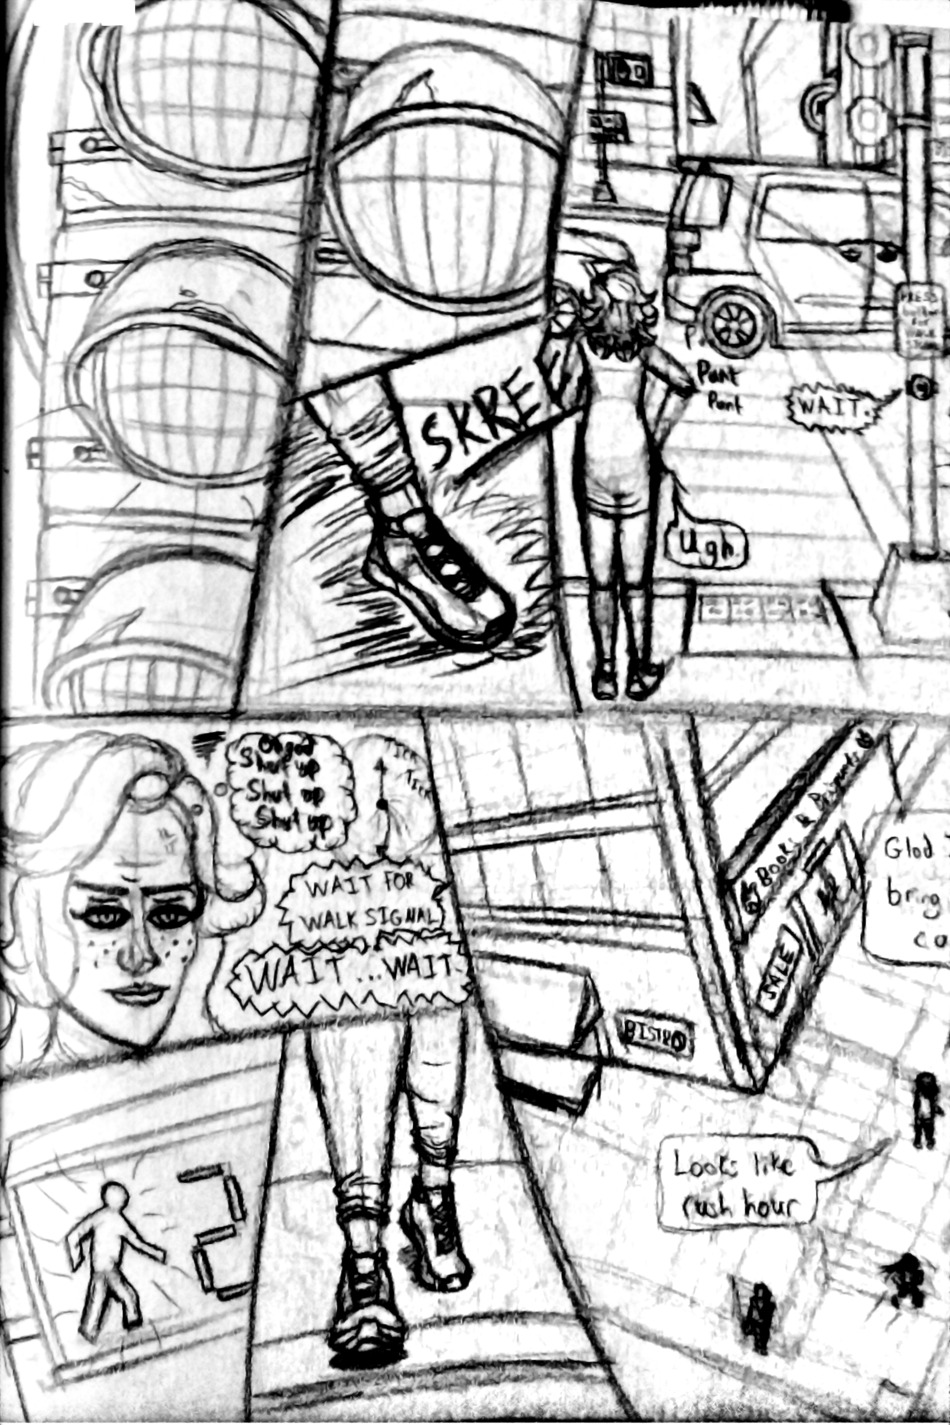 SKREE
PRESS
P.
Pant
Pant
WAIT.
Ugh
Oh god
Shut up
Shut up
Shut up
TICK
TICK
WAIT FOR
WALK SIGNAL
WAIT ... WAIT.
Books &
SALE
BISTRO
Glad
bring
co
Looks like
rush hour
2